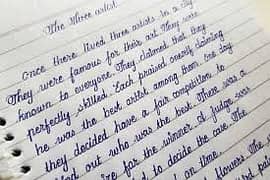 The three artist
Once there lived three artists in a city.
They were famous for their art. They were
known to everyone. They claimed that they
perfectly skilled. Each praised overly claiming
he was the best artist among them. one day
they decided have a fair competition to
out who was the best. There was a
for the winner of judge was
to decide the case. The
on time.
flowers. The